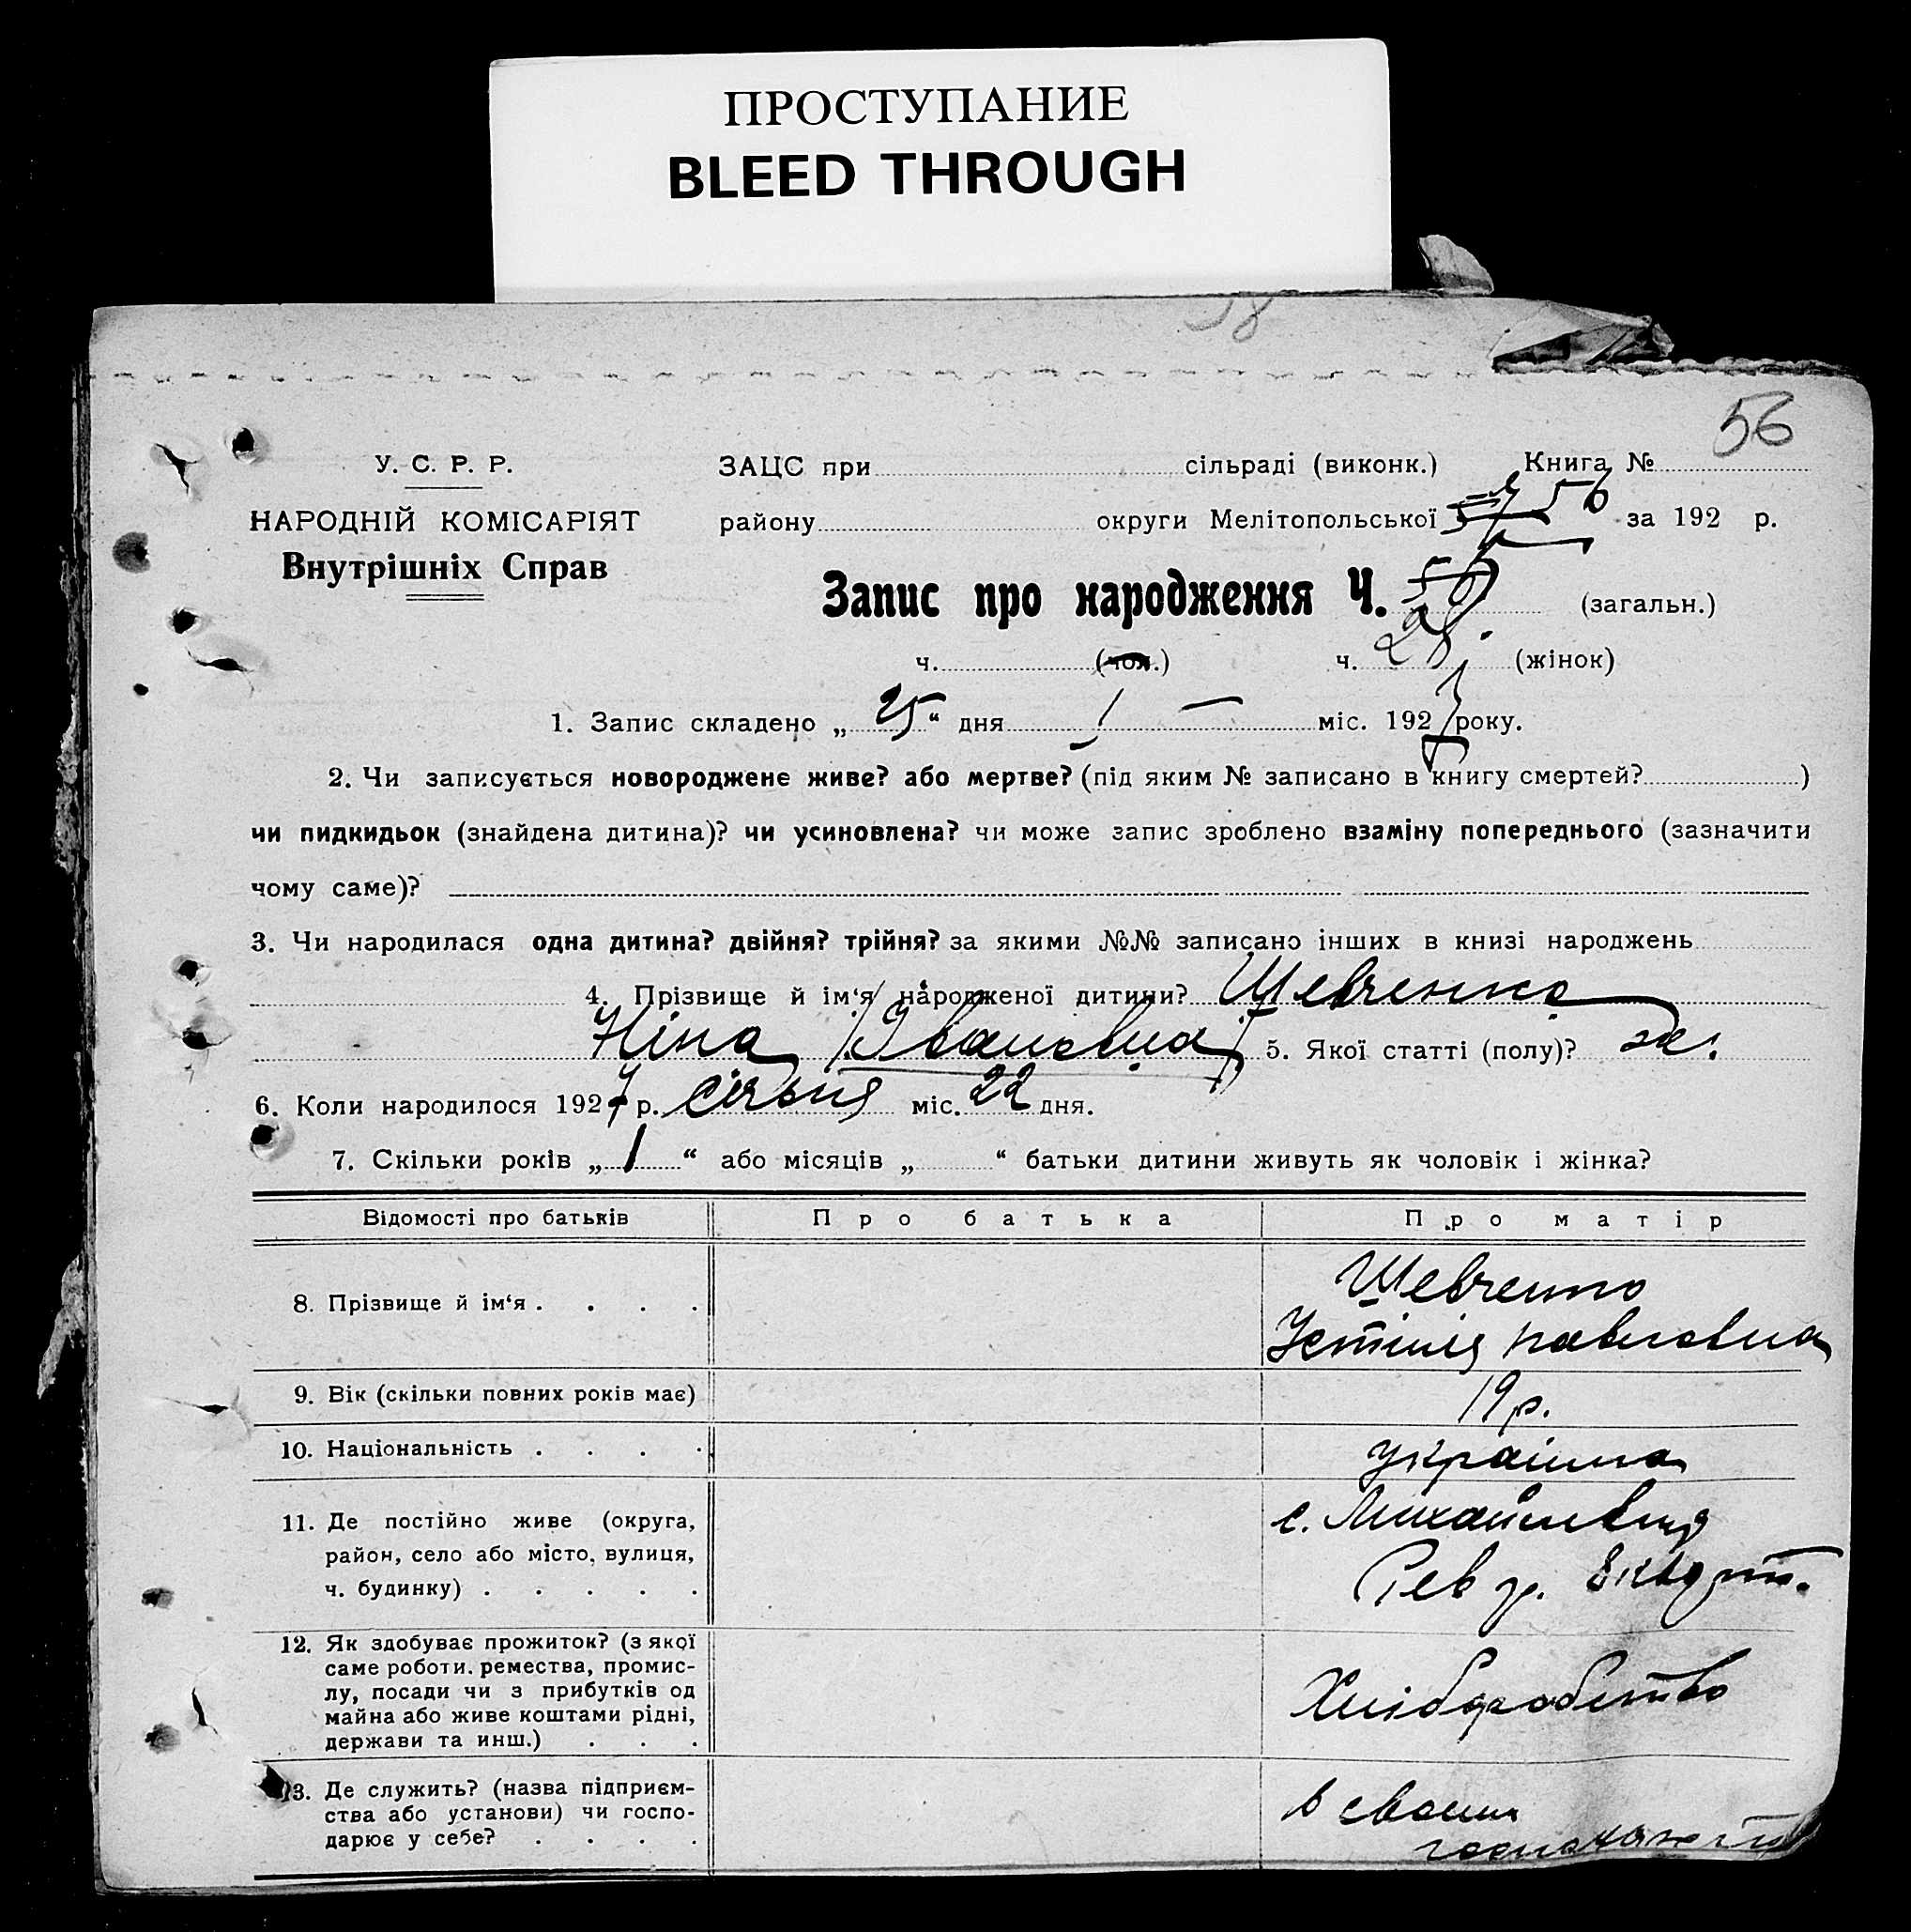 ПРОСТУПАНИЕ
BLEED THROUGH
58
56
У. С. Р. Р.
НАРОДНІЙ КОМІСАРІЯТ
Внутрішніх Справ
ЗАЦС при сільраді (виконк.) Книга №
району округи Мелітопольської 56 за 192 р.
Запис про народження Ч. (загальн.)
ч. (чол.) ч. 28. (жінок)
1. Запис складено „ 25 “ дня 1 міс. 1927 року.
2. Чи записується новороджене живе? або мертве? (під яким № записано в книгу смертей? )
чи пидкидьок (знайдена дитина)? чи усиновлена? чи може запис зроблено взаміну попереднього (зазначити
чому саме)?
3. Чи народилася одна дитина? двійня? трійня? за якими №№ записано інших в книзі народжень
4. Прізвище й ім‘я народженої дитини? Шевченко
Ніна (Івановна) 5. Якої статті (полу)? ж.
6. Коли народилося 1927 р. Січня міс. 22 дня.
7. Скільки років „ 1 “ або місяців „ “ батьки дитини живуть як чоловік і жінка?
Відомості про батьків Про батька Про матір
8. Прізвище й ім‘я . . . . Шевченко
Устинія Павловна
9. Вік (скільки повних років має) 19 р.
10. Національність . . . . українка
11. Де постійно живе (округа, район, село або місто, вулиця, ч. будинку) . . . . . с. Михайлівка
Рев
12. Як здобуває прожиток? (з якої саме роботи. ремества, промислу, посади чи з прибутків од майна або живе коштами рідні, держави та инш.) . . . Хліборобство
13. Де служить? (назва підприємства або установи) чи господарює у себе? . . . . в своим